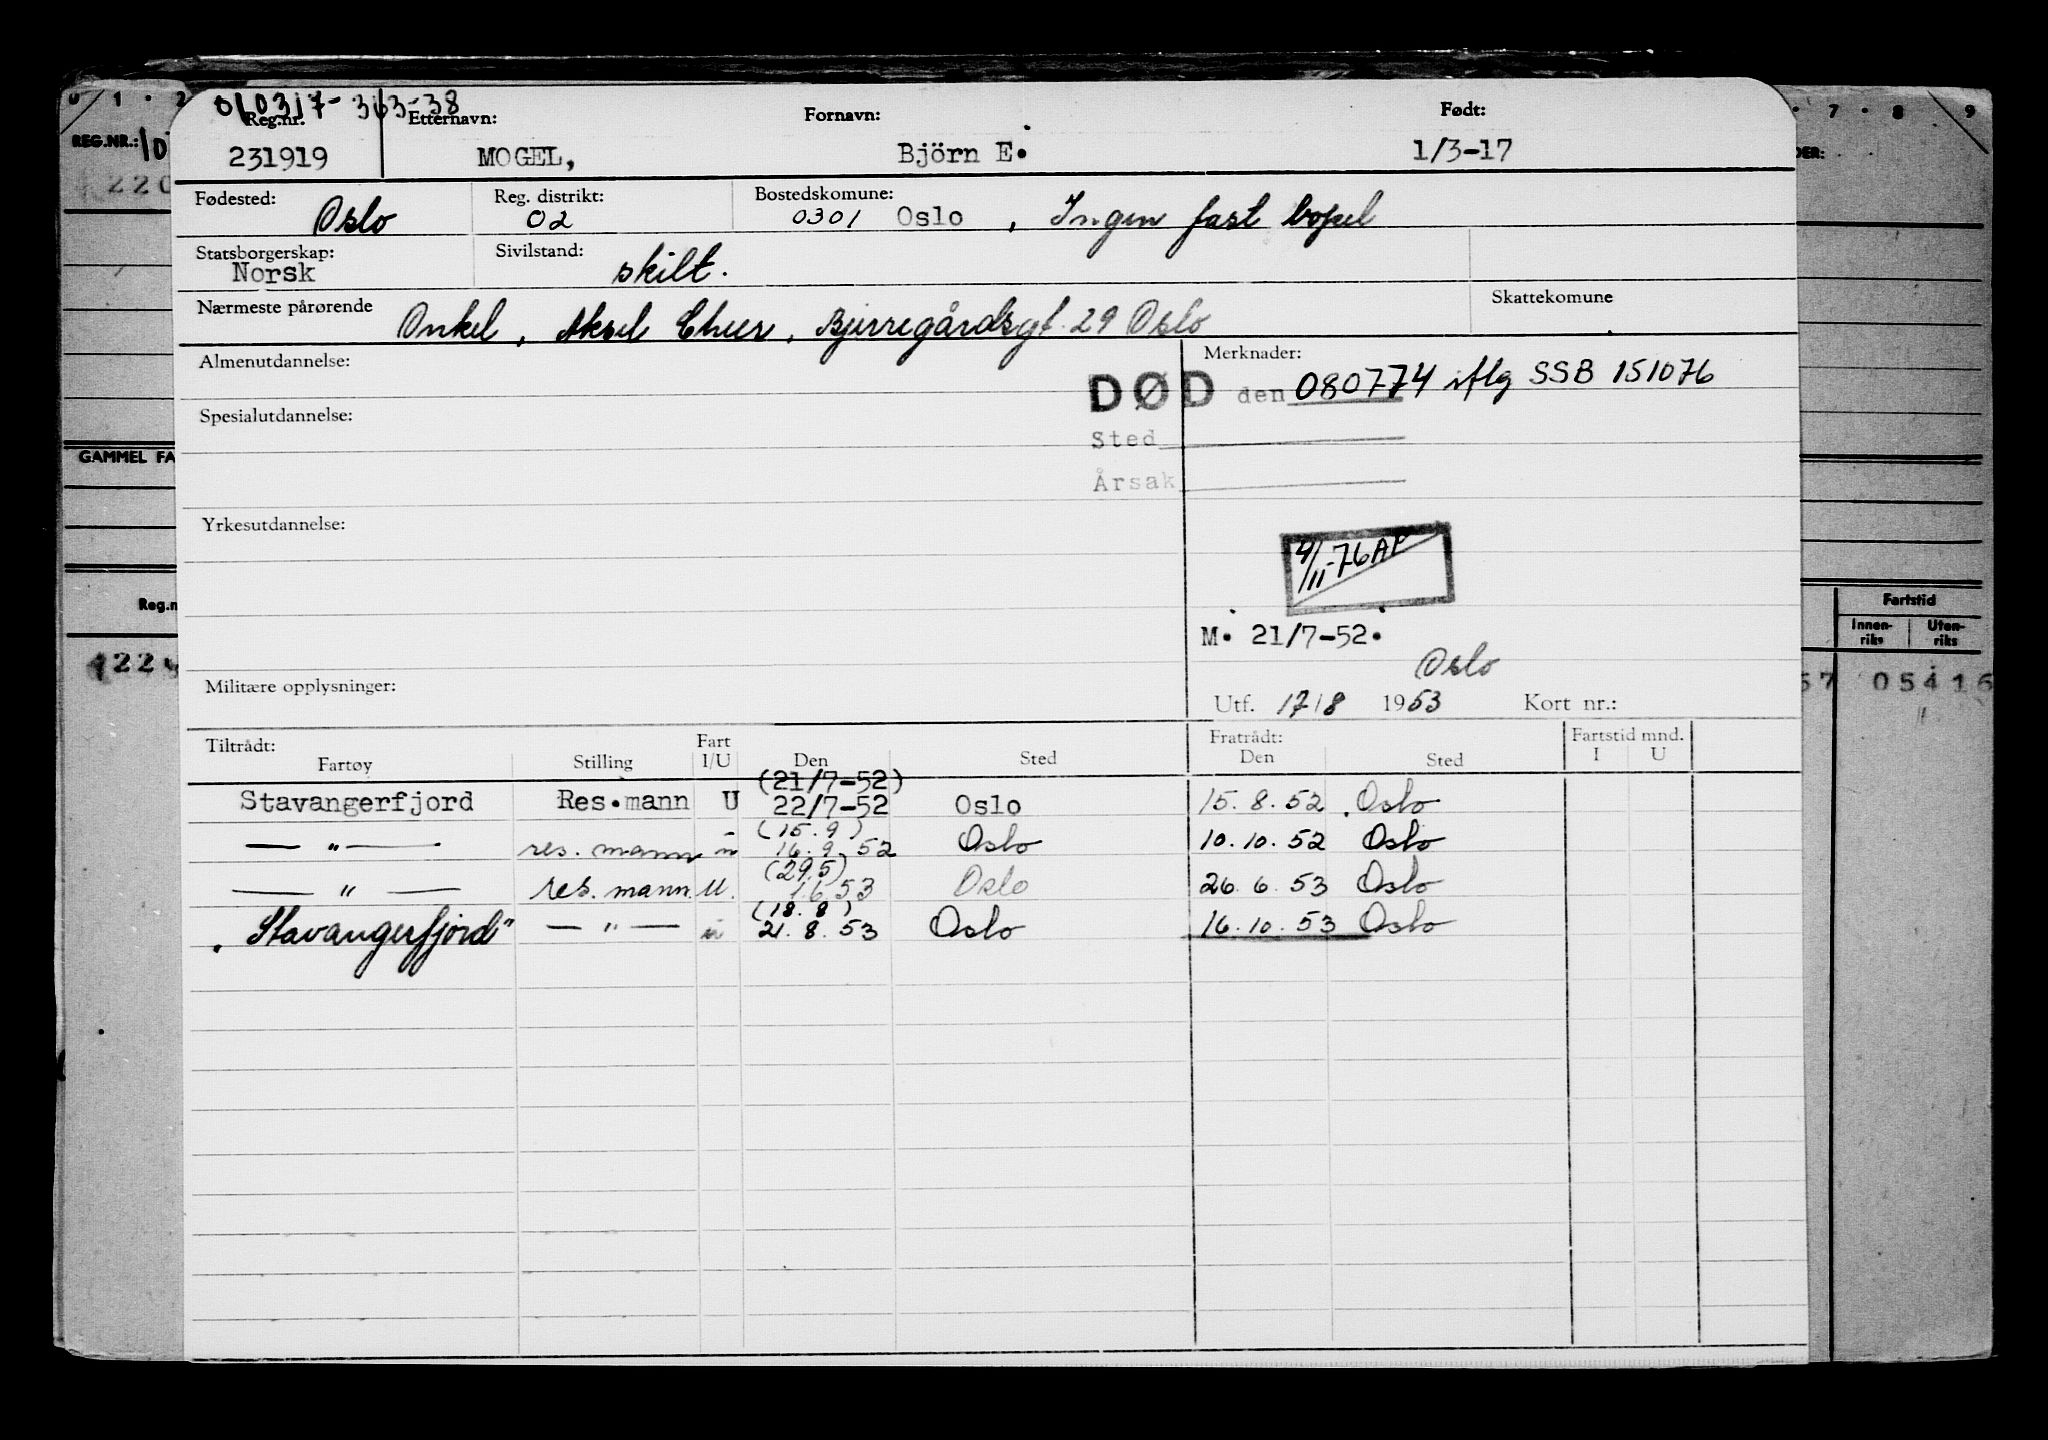 0 1 2
7 8 9
REG.NR.: 10
220
GAMMEL FA
Reg.n
DER:
Fartstid
Innen-riks Uten-riks
57 05416
010317-363-38
Reg.nr. Etternavn: Fornavn: Født:
231919 MOGEL, Björn E. 1/3-17
Fødested: Reg. distrikt: Bostedskomune:
Oslo 02 0301 Oslo , Ingen fast bopel
Statsborgerskap: Sivilstand:
Norsk skilt.
Nærmeste pårørende Skattekomune
Onkel, Aksel Bjerregårdsgt. 29 Oslo
Almenutdannelse: Merknader:
DØD den 080774 iflg SSB 151076
Spesialutdannelse:
Sted
Årsak
Yrkesutdannelse:
4/11-76 AP
M. 21/7-52.
Oslo
Militære opplysninger:
Utf. 17/8 1953 Kort nr.:
Tiltrådt: Fratrådt: Fartstid mnd.
Fartøy Stilling Fart I/U Den Sted Den Sted I U
(21/7-52)
Stavangerfjord Res.mann U 22/7-52 Oslo 15.8.52 Oslo
(15.9)
— " — res. mann u 16.9 52 Oslo 10.10.52 Oslo
(29.5)
— " — res. mann. U. 1 6 53 Oslo 26.6.53 Oslo
(18.8)
"Stavangerfjord" — " — u 21.8.53 Oslo 16.10.53 Oslo